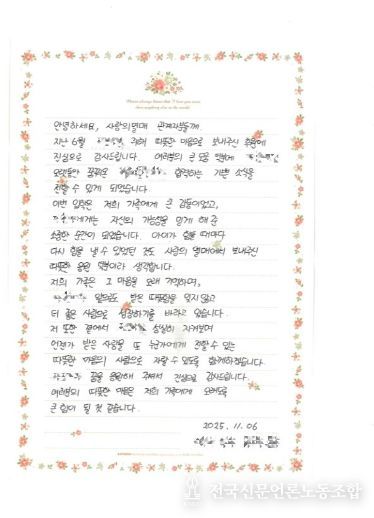 안녕하세요, 사랑의열매 관계자분들께.
지난 6월 위해 따뜻한 마음으로 보내주신 후원에
진심으로 감사드립니다. 여러분의 큰 도움 덕분에
오랫동안 꿈꿔온 합격하는 기쁜 소식을
전할 수 있게 되었습니다.
이번 입학은 저희 가족에게 큰 감동이었고,
에게는 자신의 가능성을 믿게 해 준
소중한 순간이 되었습니다. 아이가 힘들 때마다
다시 힘을 낼 수 있었던 것도 사랑의 열매에서 보내주신
따뜻한 응원 덕분이라 생각합니다.
저희 가족은 그 마음을 오래 기억하며,
앞으로도 받은 따뜻함을 잊지 않고
더 좋은 사람으로 성장하기를 바라고 있습니다.
저 또한 곁에서 성실히 지켜보며
언젠가 받은 사랑을 또 누군가에게 전할 수 있는
따뜻한 마음의 사람으로 자랄 수 있도록 함께하겠습니다.
꿈을 응원해 주셔서 진심으로 감사드립니다.
여러분의 따뜻한 마음은 저희 가족에게 오래도록
큰 힘이 될 것 같습니다.
2025. 11. 06
전국신문언론노동조합